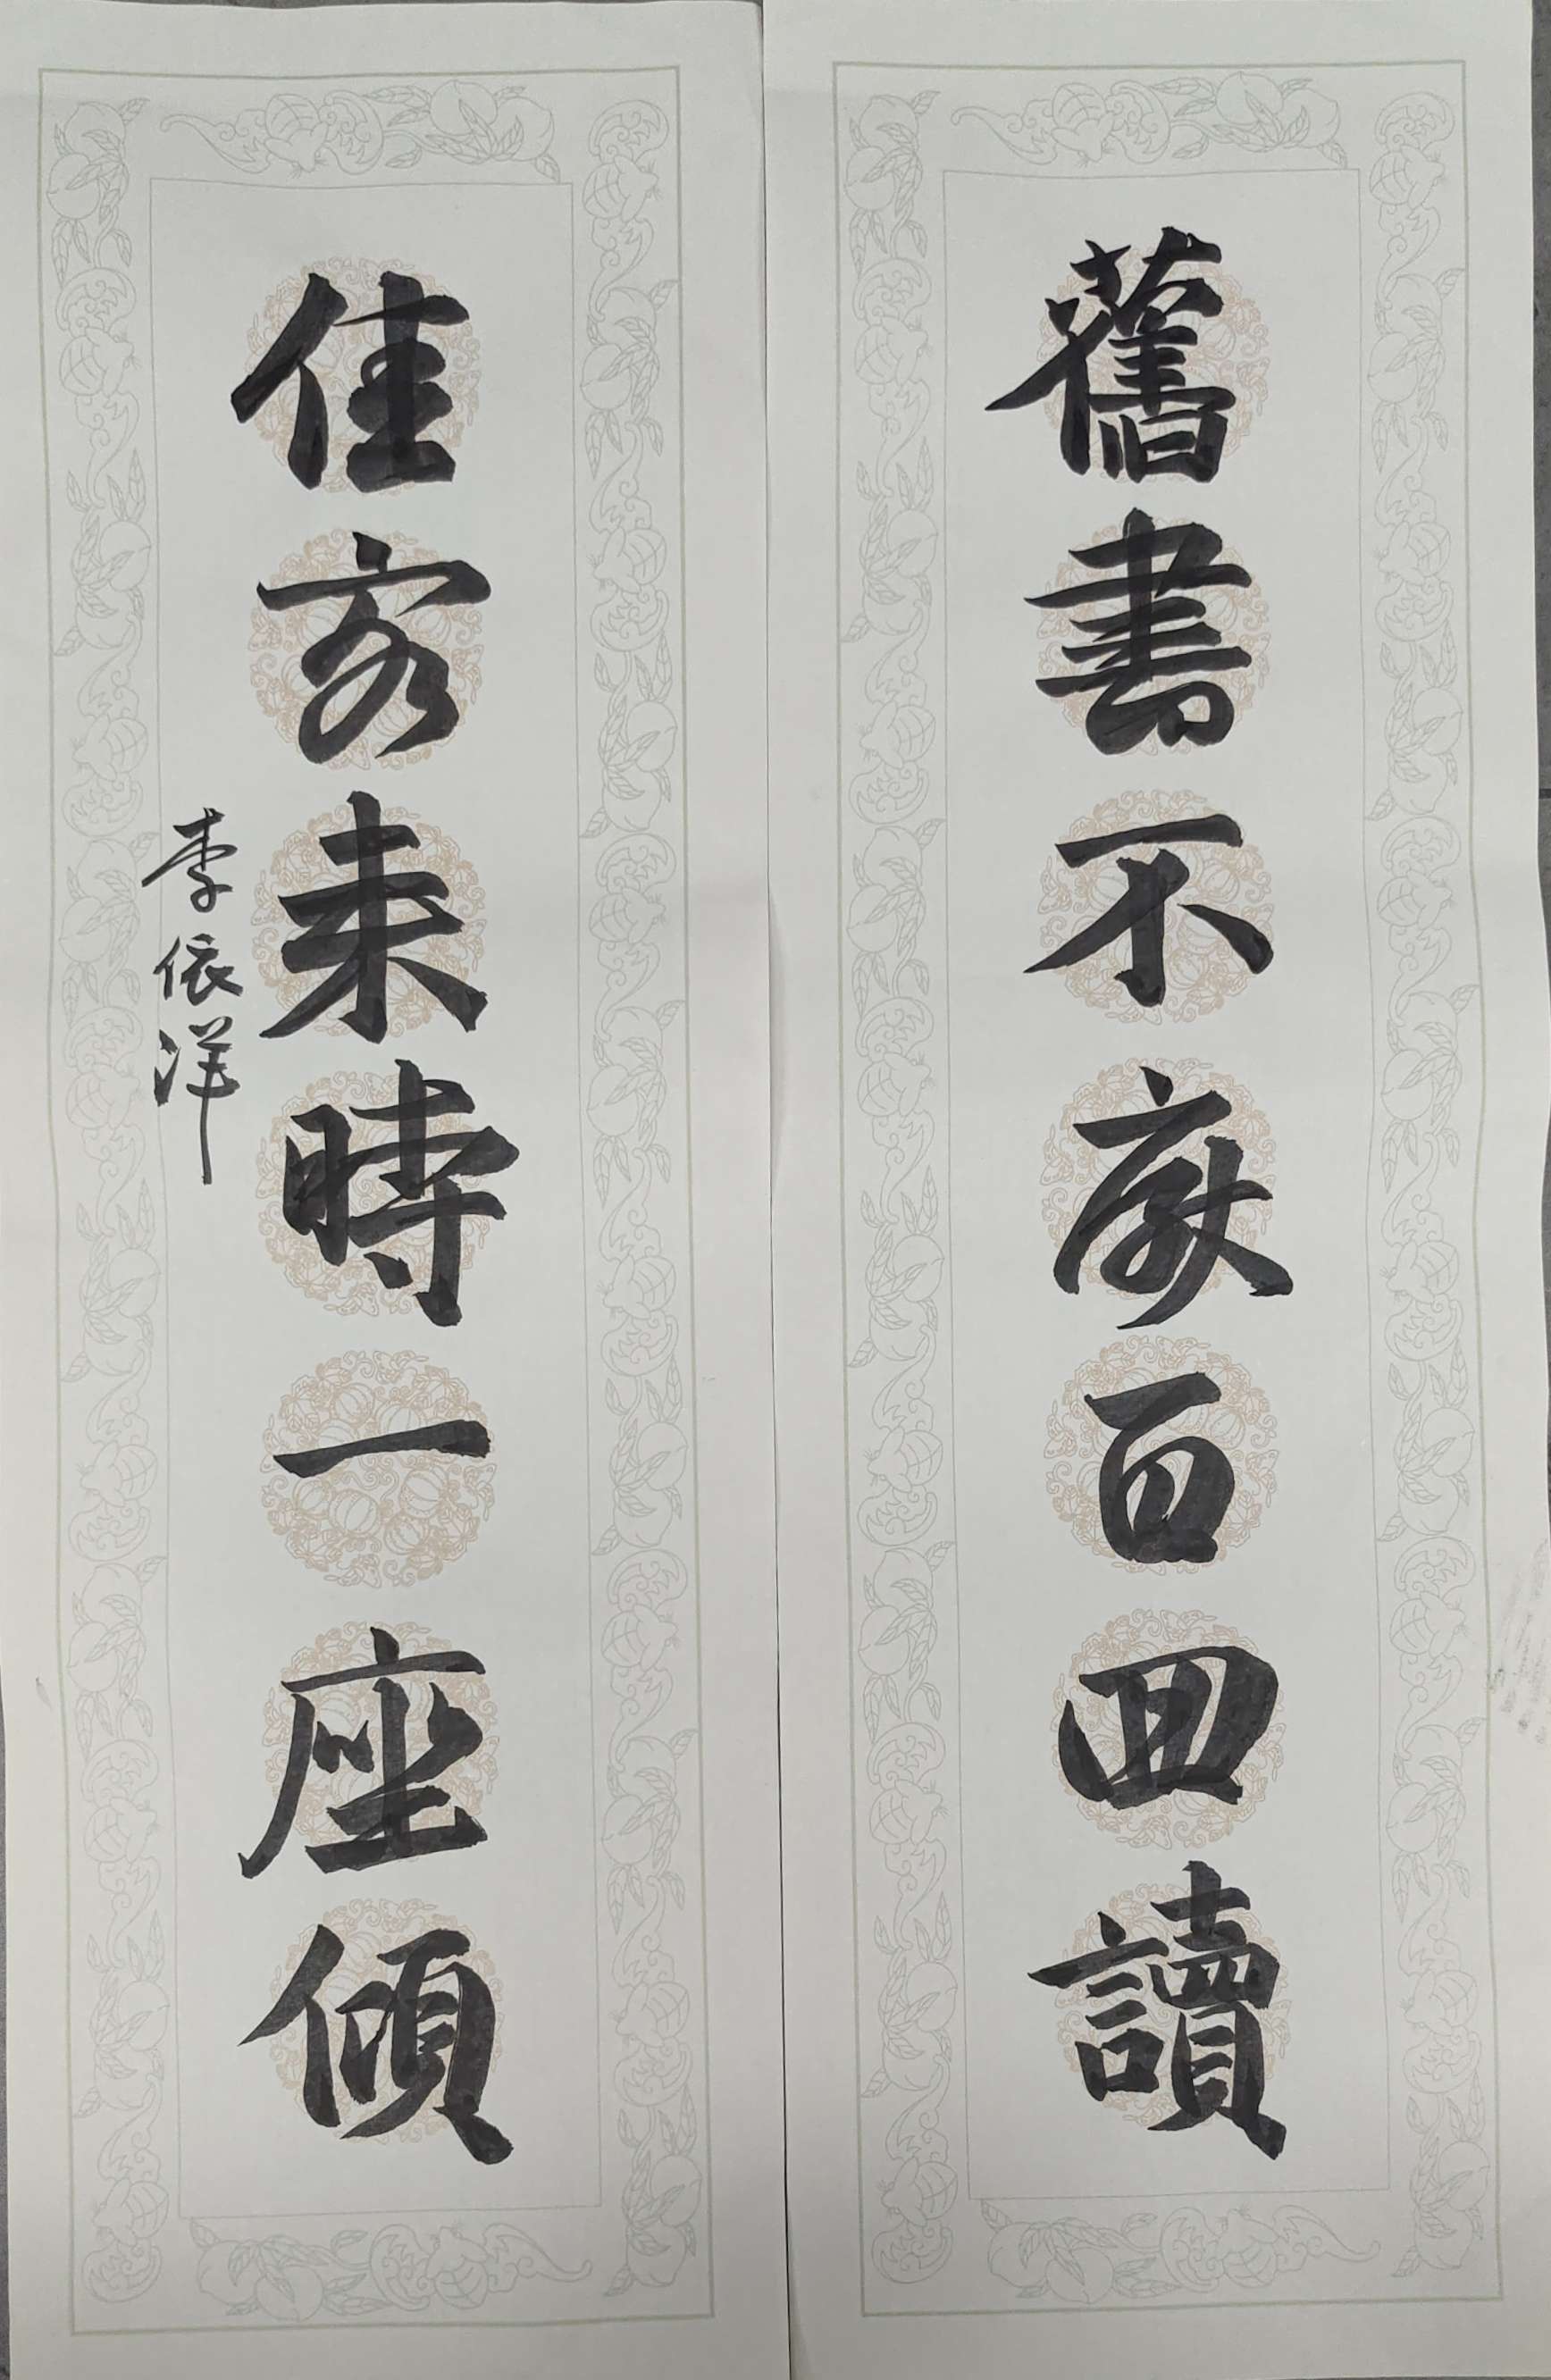 舊書不厭百回讀
佳客來時一座傾
李依洋